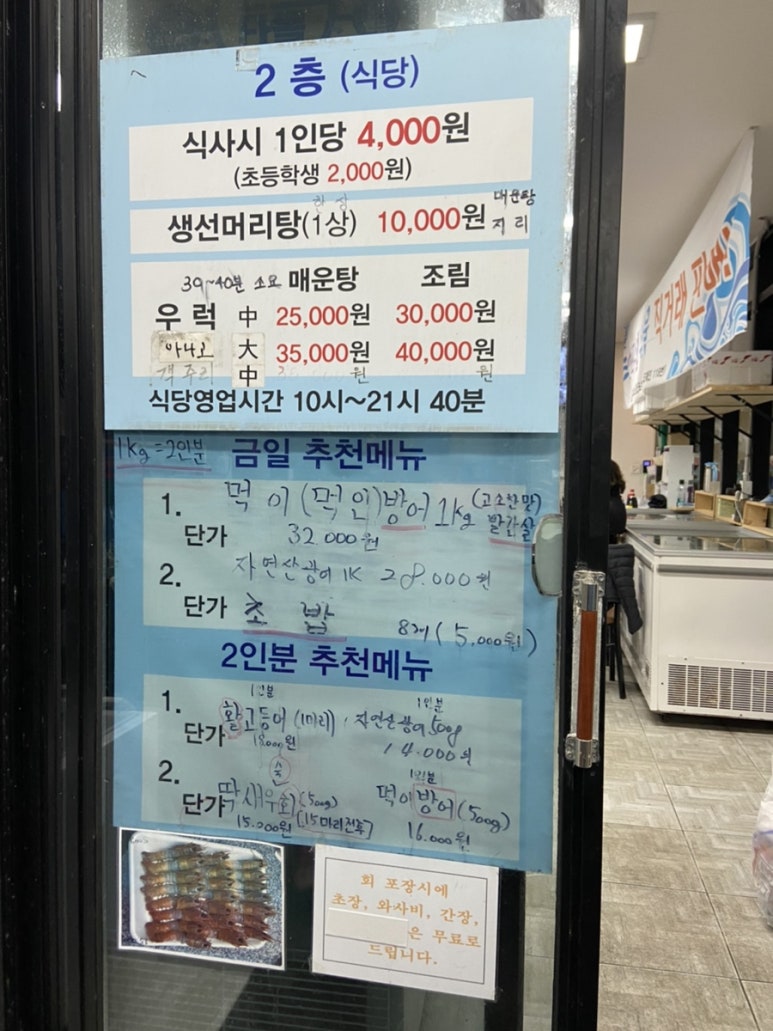 2층 (식당)
식사시 1인당 4,000원
(초등학생 2,000원)
한상
생선머리탕(1상) 10,000원 매운탕 지리
30~40분 소요 매운탕 조림
우럭 中 25,000원 30,000원
아나고 大 35,000원 40,000원
객주리 中 원 원
식당영업시간 10시~21시 40분
1kg=2인분 금일 추천메뉴
1. 떡이(먹인)방어 1kg (고소한맛) 빨간살
단가 32000원
2. 자연산광어 1K 28.000원
단가 초밥 8개(5.000원)
2인분 추천메뉴
1인분 1인분
1. 활고등어(1마리), 자연산광어500g
단가 18000원 14.000원
2. 1인분
단가 딱새우회(500g) 떡이방어(500g)
15.000원 [15마리전후] 16.000원
회 포장시에
초장, 와사비, 간장,
은 무료로
드립니다.
직거래